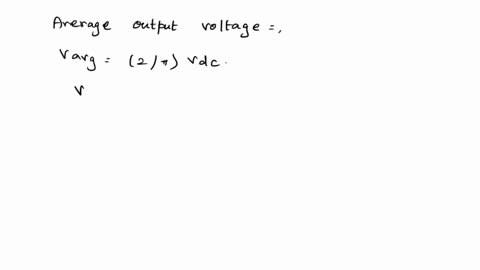 Average output voltage =,
Vavg = (2/π) Vdc.
V